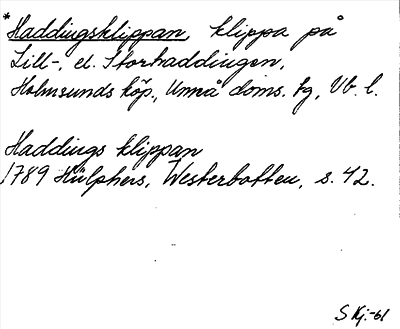 *Haddingsklippan, klippa på
Lill-, el. Storhaddingen,
Holmsunds köp., Umeå doms. fg, Vb. l.
Haddings klippan
1789 Hülphers, Westerbotten, s. 42.
S Kj.-61